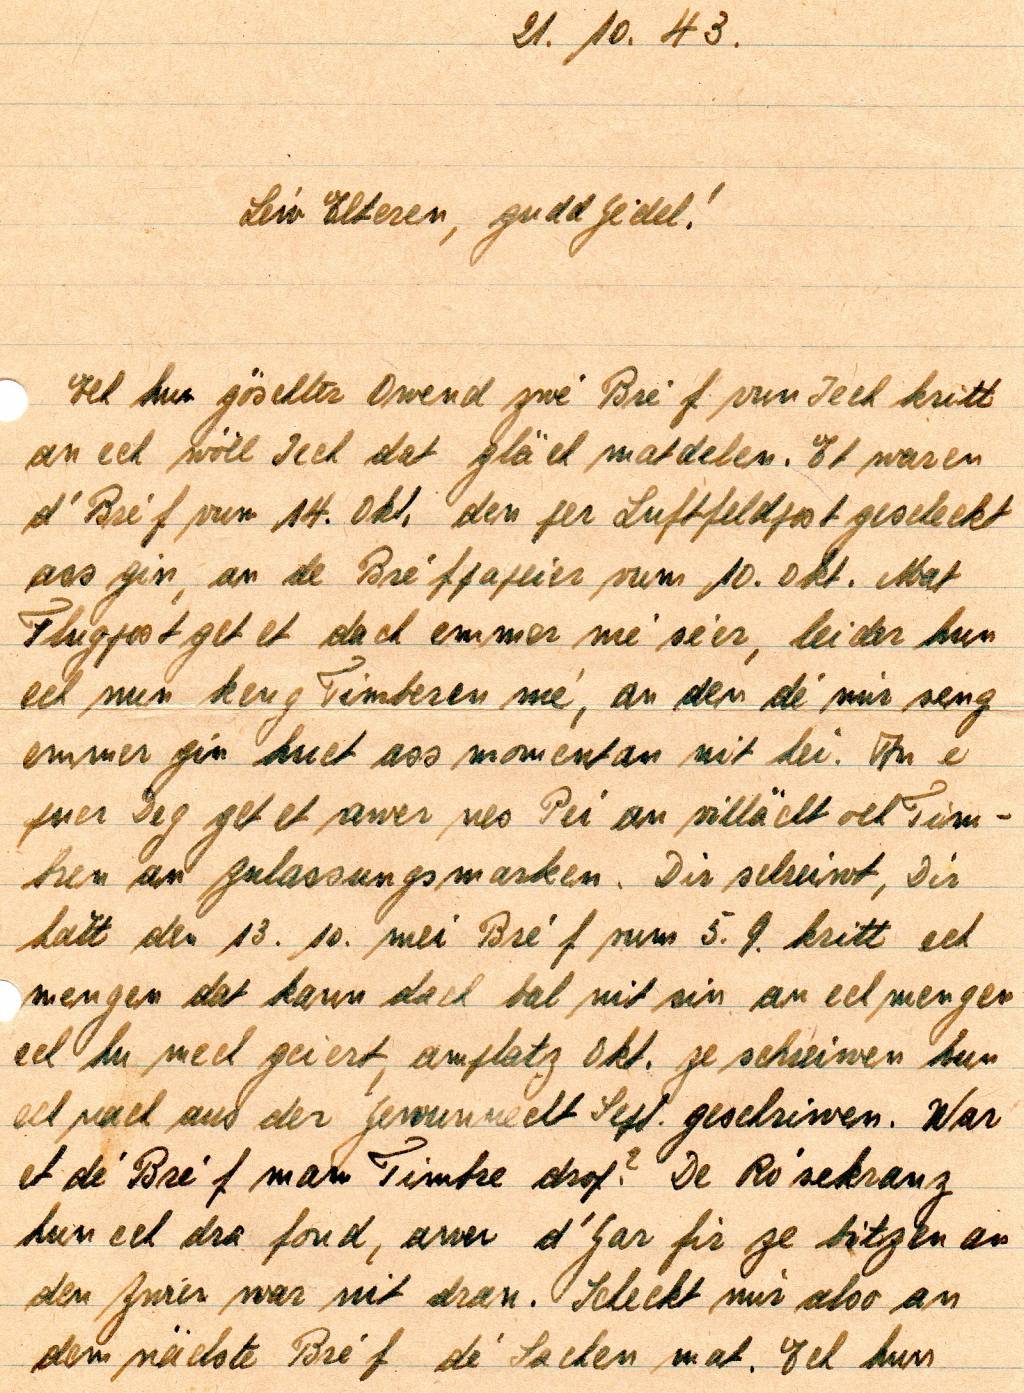 21. 10. 43.
Leiw Elteren, gudd Jeidel!
Ech hun göschter Owend zwé Bréf vun Iech kritt
an ech wöll Iech dat gläch matdelen. Et waren
d'Bréf vum 14. Okt. den per Luftfeldpost gescheckt
ass gin, an de Bréfpapeier vum 10. Okt. Mat
Flugpost get et dach emmer mé séier, leider hun
ech nun keng Timberen mé, an den dé mir seng
emmer gin huet ass momentan nit hei. An e
puer Deg get et awer nes Pei an villächt och Tim-
bren an Zulassungsmarken. Dir schreiwt, Dir
hätt den 13. 10. mei Bréf vum 5. 9. kritt ech
mengen dat kann dach bal nit sin an ech mengen
ech hu mech geiert, amplatz Okt. ze schreiwen hun
ech nach aus der Gewunnecht Sept. geschriwen. War
et dé Bréf mam Timbre drop? De Rósekranz
hun ech dra fond, awer d'Gar fir ze bitzen an
den Zwir war nit dran. Scheckt mir also an
dem nächste Bréf dé Sachen mat. Ech hun